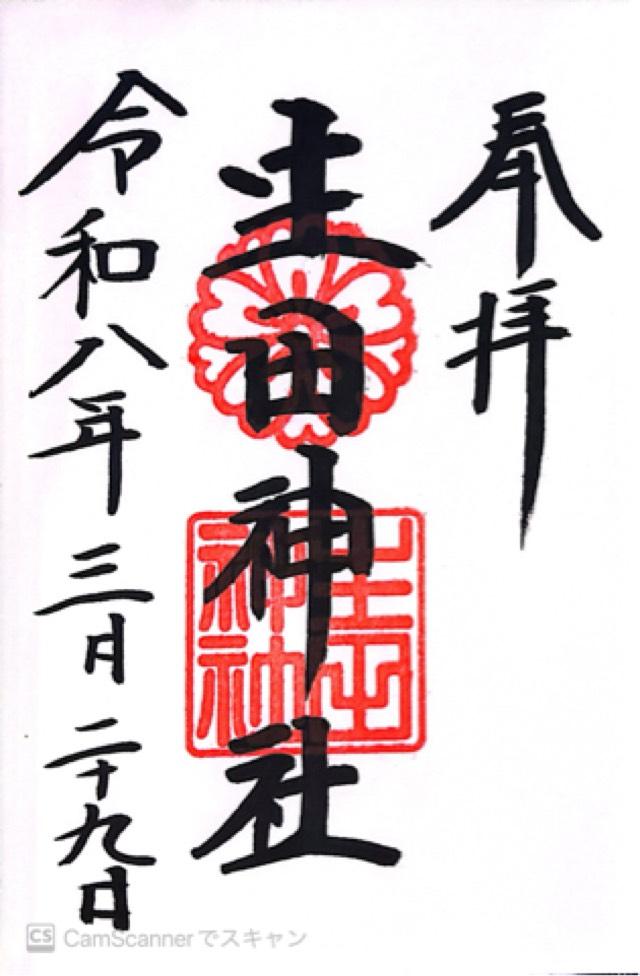 奉拝
生田神社
生田神社
令和八年三月二十九日
CS CamScannerでスキャン